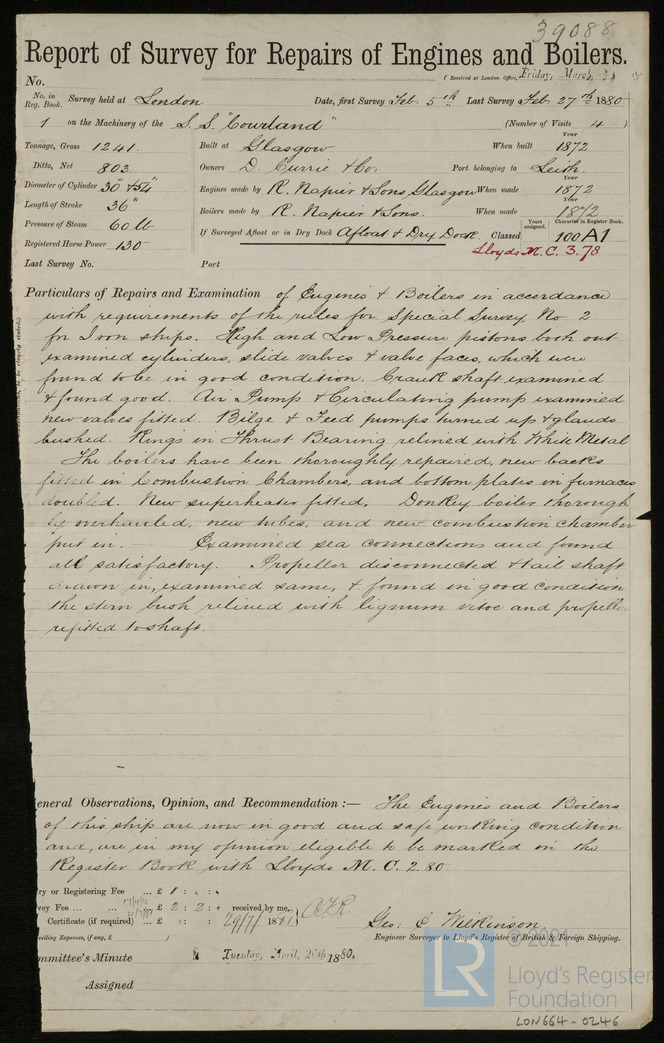 39088
Report of Survey for Repairs of Engines and Boilers.
No.
(Received at London Office, Friday, March
No. in Reg. Book. Survey held at London Date, first Survey Feb. 5th Last Survey Feb. 27th 1880
1 on the Machinery of the S.S. "Courland" (Number of Visits 4)
Tonnage, Gross 1241. Built at Glasgow When built Year 1872
Ditto, Net 803 Owners D. Currie & Co. Port belonging to Leith.
Diameter of Cylinder 30" & 54" Engines made by R. Napier & Sons, Glasgow When made Year 1872
Length of Stroke 36" Boilers made by R. Napier & Sons. When made Year 1872
Pressure of Steam 60 lb If Surveyed Afloat or in Dry Dock Afloat & Dry Dock. Classed Years assigned. 100 Character in Register Book. A1
Registered Horse Power 130 Lloyds M.C. 3.78
Last Survey No. Port
Particulars of Repairs and Examination of Engines & Boilers in accordance
with requirements of the rules for Special Survey No 2
for Iron ships. High and Low Pressure pistons both out
examined cylinders, slide valves & valve faces, which were
found to be in good condition. Crank shaft examined
& found good. Air Pump & Circulating pump examined
new valves fitted. Bilge & Feed pumps turned up & glands
bushed. Rings in Thrust Bearing relined with White Metal
The boilers have been thoroughly repaired, new backs
fitted in Combustion Chambers, and bottom plates in furnaces
doubled. New superheater fitted. Donkey boiler thorough
ly overhauled, new tubes, and new combustion chamber
put in. — Examined sea connections and found
all satisfactory. Propellor disconnected & tail shaft
drawn in, examined same, & found in good condition
the stern bush relined with lignum vitoe and propello
refitted to shaft.
eneral Observations, Opinion, and Recommendation :— The Engines and Boilers
of this ship are now in good and safe working condition
and, are in my opinion eligible to be marked in the
Register Book with Lloyds M.C. 2.80
ry or Registering Fee ... £ 1 : " : "
vey Fee ... ... £ 2 : 2 : " received by me,
Certificate (if required) ... £ : : 29/7/ 1881
velling Expenses, if any, £ )
Geo: C Wilkinson
Engineer Surveyor to Lloyd's Register of British & Foreign Shipping.
ommittee's Minute Tuesday, April, 20th 1880.
Assigned
© 2021
LR Lloyd's Register
Foundation
LON664-0246